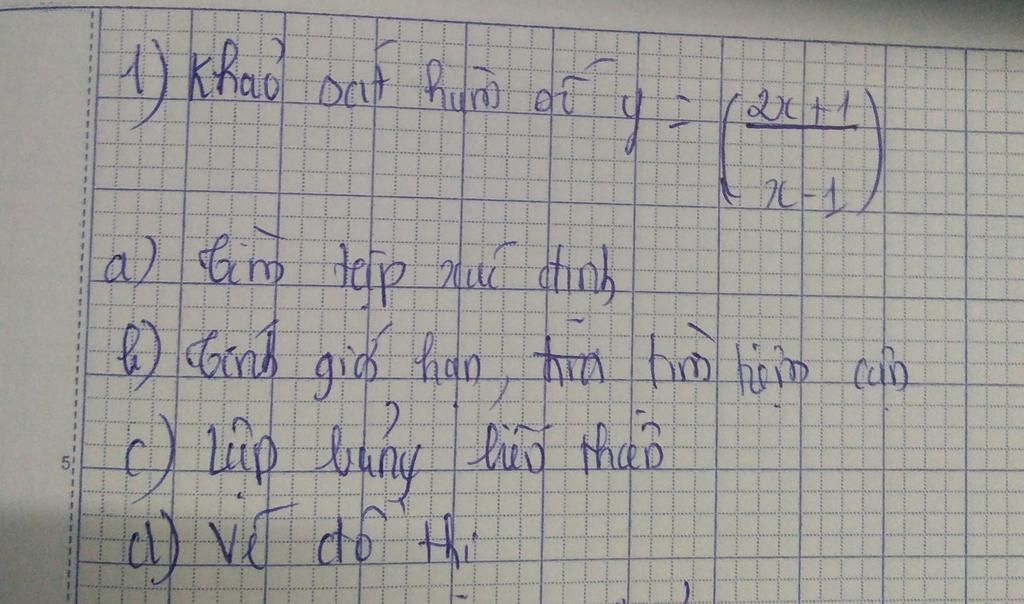 1) Khảo sát hàm số y = (2x+1 / x-1)
a) tìm tập xác định
b) tính giới hạn, tìm tiệm cận
c) Lập bảng biến thiên
d) vẽ đồ thị
5